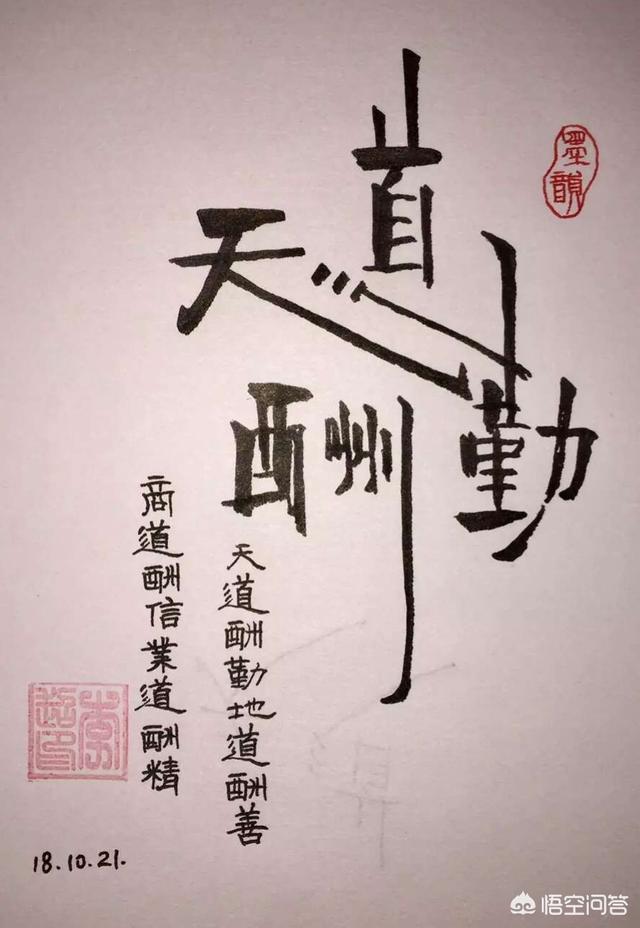 天道酬勤
墨韻
天道酬勤地道酬善
商道酬信業道酬精
18.10.21.
悟空问答